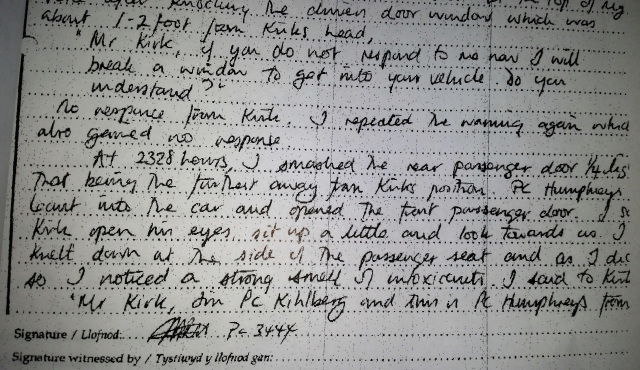 the driver door window which was
about 1-2 foot from Kirks head,
"Mr Kirk, if you do not respond to me now I will
break a window to get into your vehicle. Do you
understand?"
No response from Kirk. I repeated the warning again which
also gained no response
At 2328 hours, I smashed the rear passenger door 1/4
That being the furthest away from Kirks position. PC Humphreys
leant into the car and opened the front passenger door. I
Kirk open his eyes, sit up a little and look towards us. I
knelt down at the side of the passenger seat and as I did
so I noticed a strong smell of intoxicants. I said to Kirk
"Mr Kirk, I'm PC Kihlberg and this is PC Humphreys from
Signature / Llofnod: PC 3444
Signature witnessed by / Tystiwyd y llofnod gan: